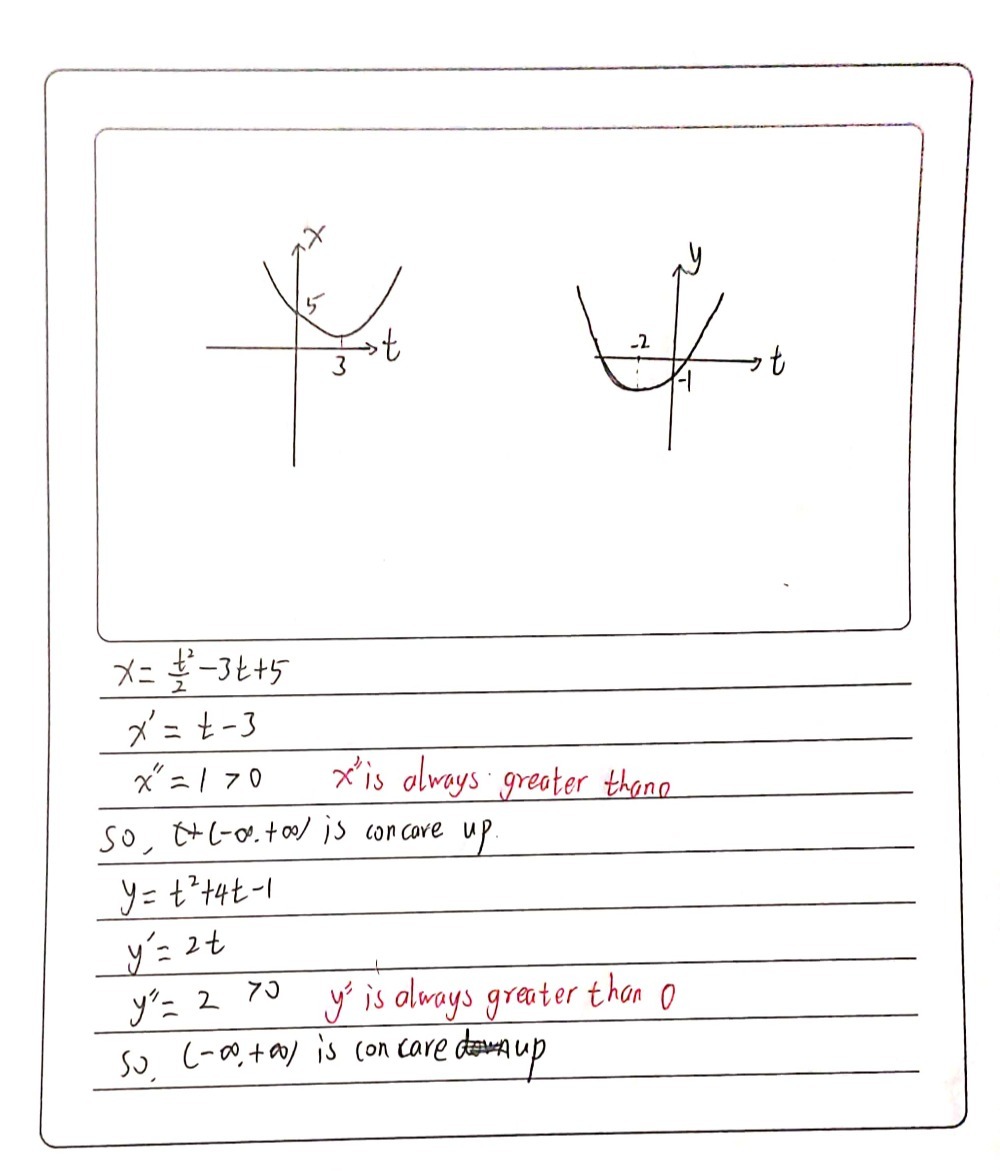 x
5
3
t
y
-2
-1
t
x = t²/2 -3t+5
x' = t-3
x'' = 1 >0 x'' is always greater than 0
so, (-∞.+∞) is concave up.
y = t²+4t-1
y' = 2t
y'' = 2 >0 y'' is always greater than 0
so, (-∞,+∞) is concave up